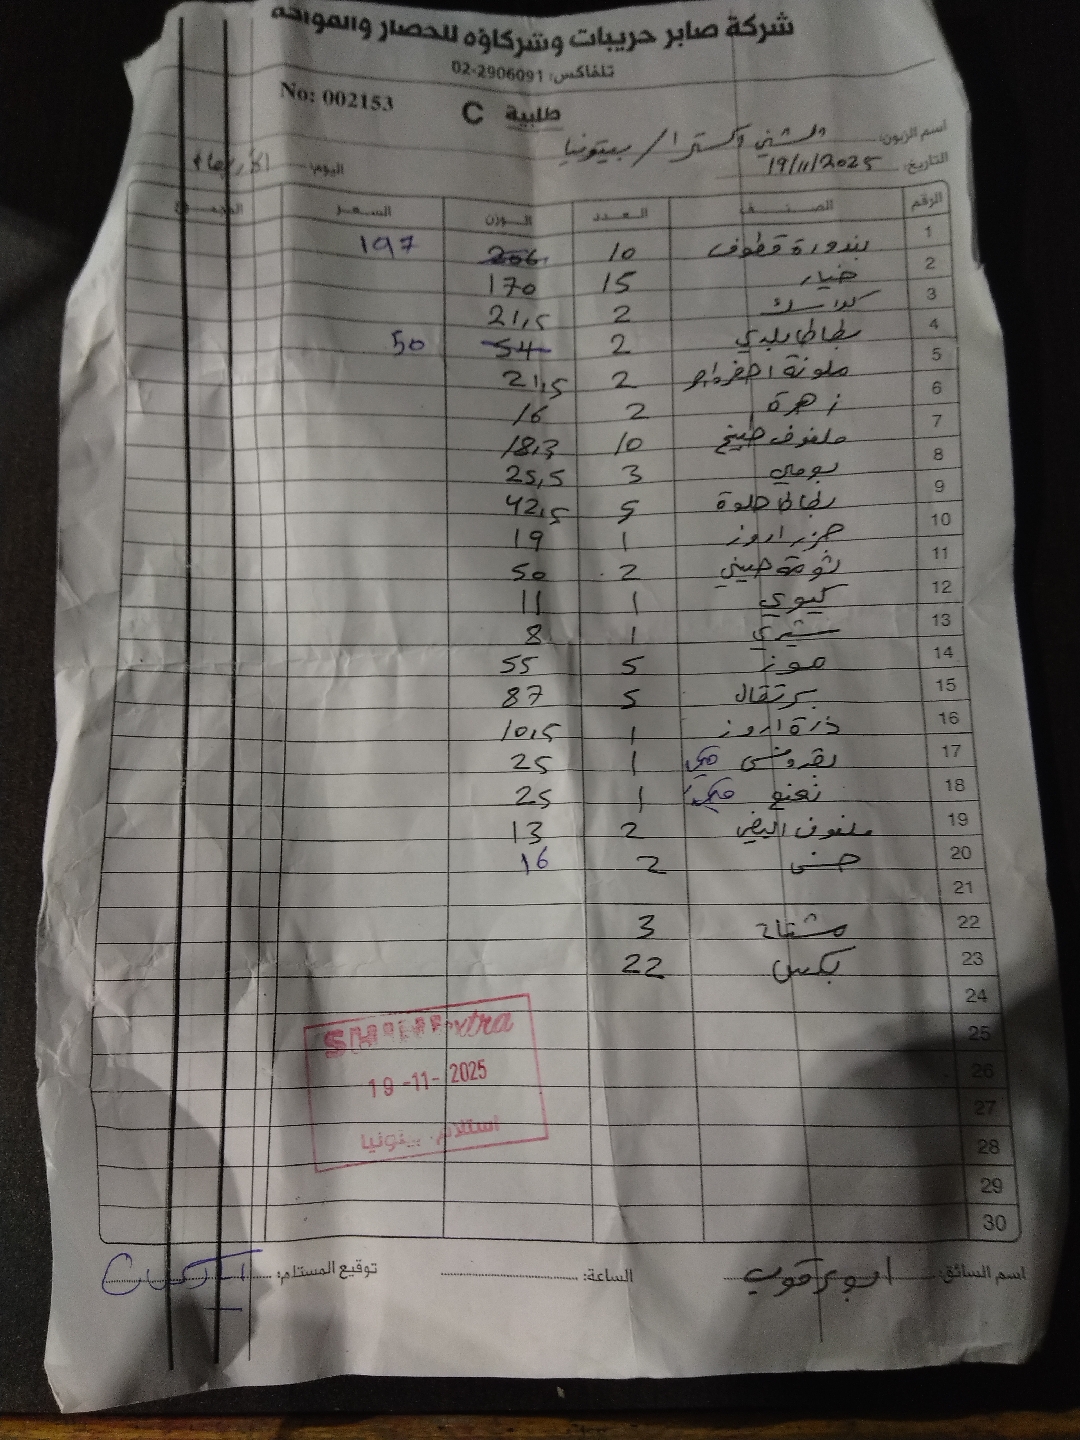 شركة صابر حريبات وشركاؤه للخضار والفواكه
تلفاكس: 02-2906091
No: 002153
طلبية C
اسم الزبون: الشني اكسترا / بيتونيا
التاريخ: 19/11/2025 اليوم: الأربعاء
الرقم الصنف العدد الوزن السعر المجموع
1 بندورة قطوف 10 206 197
2 خيار 15 170
3 2 21,5
4 بطاطا بلدي 2 54 50
5 ملونة اصفر 2 21,5
6 زهرة 2 16
7 ملفوف صيني 10 18,3
8 بوملي 3 25,5
9 بطاطا حلوة 5 42,5
10 جزر اروز 1 19
11 ثومة صيني 2 50
12 كيوي 1 11
13 شيري 1 8
14 موز 5 55
15 برتقال 5 87
16 ذرة اروز 1 10,5
17 بقدونس 1 25
18 نعنع 1 25
19 ملفوف ابيض 2 13
20 2 16
21
22 مشتاح 3
23 بكس 22
24
25
26
27
28
29
30
xtra
19-11-2025
استلام بيتونيا
اسم السائق: ابو يعقوب الساعة: توقيع المستلم: